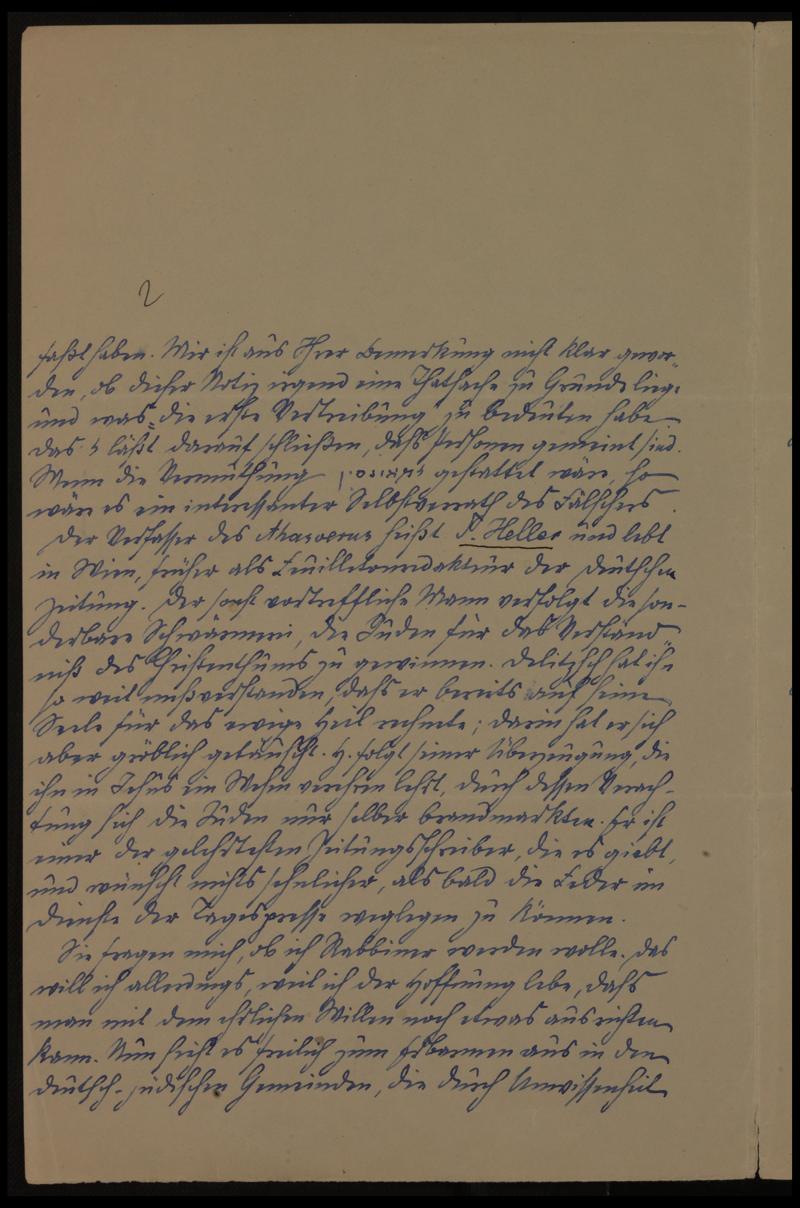 2
faßt haben. Mir ist aus Ihrer Bemerkung nicht klar gewor-
den, ob dieser Notiz irgend eine Thatsache zu Grunde liegt
und was „die erste Vertreibung" zu bedeuten habe
das ל läßt darauf schließen, daß Personen gemeint sind.
Wenn die Vermuthung gestattet wäre, so
wäre es ein interessanter Selbstverrath des Fälschers.
Der Verfasser des Ahasverus heißt S. Heller und lebt
in Wien, früher als Feuilletonredakteur der Deutschen
Zeitung. Der sonst vortreffliche Mann verfolgt die son-
derbare Schwärmerei, die Juden für das Verständ-
niß des Christenthums zu gewinnen. Delitzsch hat ihn
so weit mißverstanden, daß er bereits auf seine
Seele für das ewige Heil rechnete; darin hat er sich
aber gröblich getäuscht. H. folgt seiner Überzeugung, die
ihn in Jesus ein Wesen verehren lehrt, durch dessen Verach-
tung sich die Juden nur selber brandmarkten. Er ist
einer der gelehrtesten Zeitungsschreiber, die es giebt,
und wünscht nichts sehnlicher, als bald die Feder im
Dienste der Tagespresse weglegen zu können.
Sie fragen mich, ob ich Rabbiner werden wolle. Das
will ich allerdings, weil ich der Hoffnung lebe, daß
man mit dem ehrlichen Willen noch etwas ausrichten
kann. Nun sieht es freilich zum Erbarmen aus in den
deutsch-jüdischen Gemeinden, die durch Unwissenheit